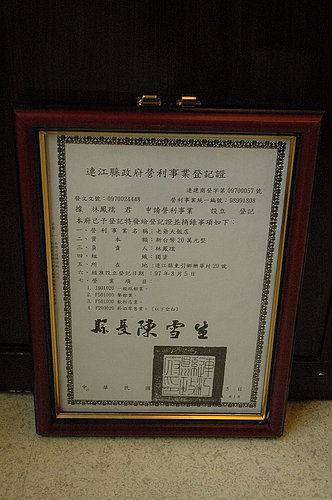 連江縣政府營利事業登記證
連建商登字第09700057號
發文文號：0970024448 營利事業統一編號：98991808
據 林鳳孺 君 申請營利事業 設立 登記
本府已予登記特發給登記證並摘錄事項如下：
一、營利事業名稱：老爺大飯店
二、資本額：新台幣20萬元整
三、負責人：林鳳孺
四、組織：獨資
五、所在地：連江縣東引鄉樂華村29號
六、核准設立登記日期：97年8月5日
七、營業項目：
1. J901020 一般旅館業。
2. F501060 餐館業。
3. F501030 飲料店業。
4. F203020 菸酒零售業。（以下空白）
縣長陳雪生
中華民國 5日